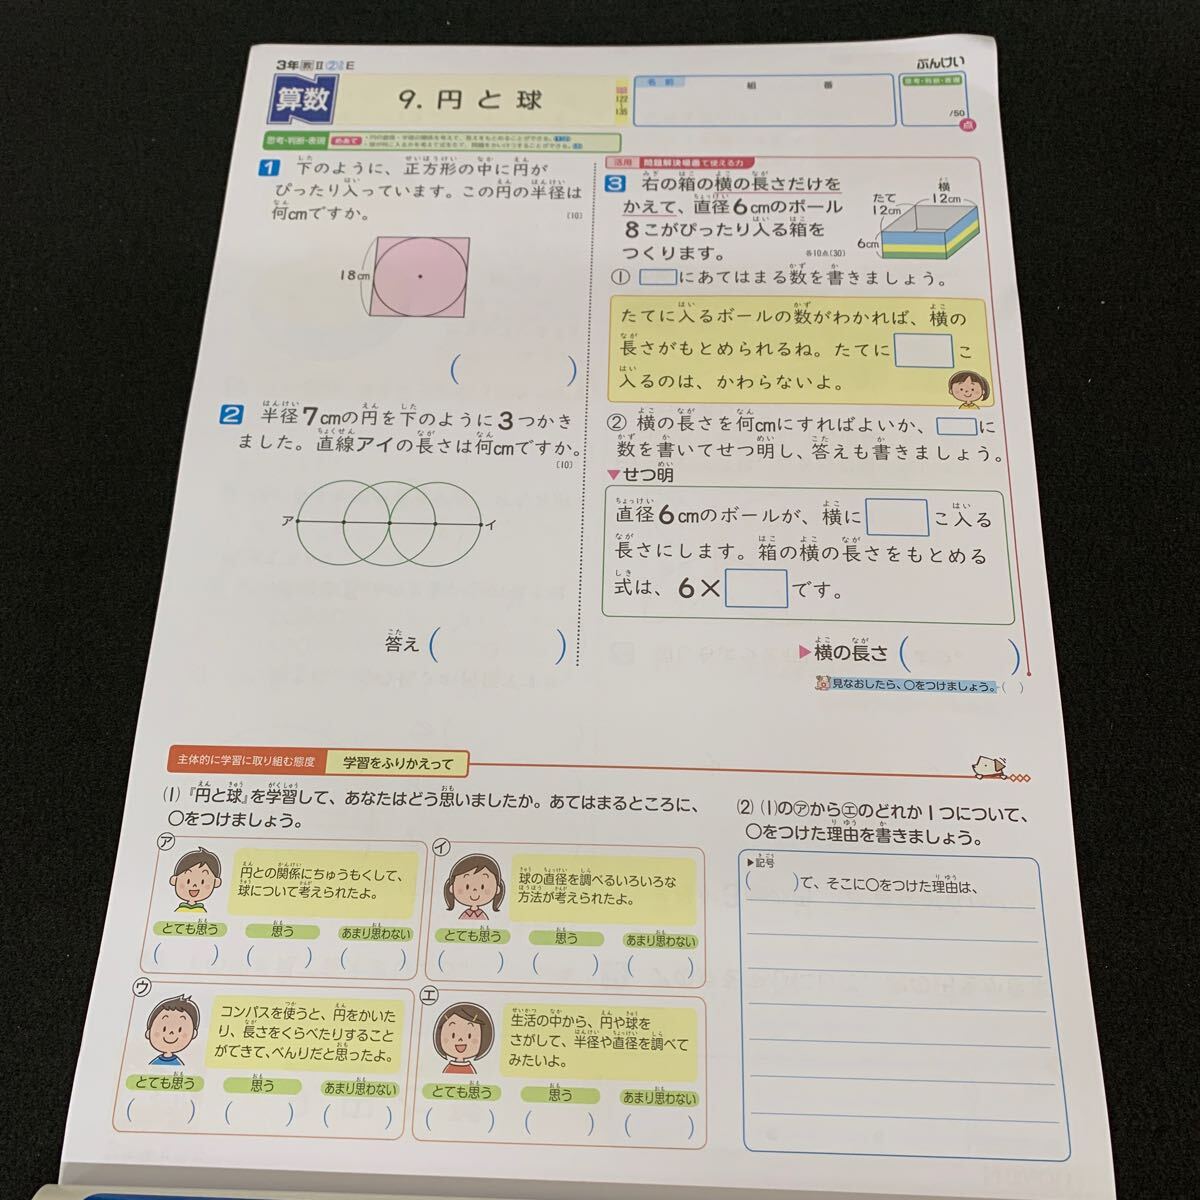 3年教Ⅱ E
ぶんけい
算数
9. 円と球
122
135
名前
組
番
思考・判断・表現
/50
点
思考・判断・表現
めあて
1 下のように、正方形の中に円が
ぴったり入っています。この円の半径は
何cmですか。
〔10〕
18cm
( )
2 半径7cmの円を下のように3つかき
ました。直線アイの長さは何cmですか。
〔10〕
ア
イ
答え ( )
活用 問題解決場面で使える力
3 右の箱の横の長さだけを
かえて、直径6cmのボール
8こがぴったり入る箱を
つくります。
各10点〔30〕
たて
12cm
横
12cm
6cm
① □にあてはまる数を書きましょう。
たてに入るボールの数がわかれば、横の
長さがもとめられるね。たてに□こ
入るのは、かわらないよ。
② 横の長さを何cmにすればよいか、□に
数を書いてせつ明し、答えも書きましょう。
▼せつ明
直径6cmのボールが、横に□こ入る
長さにします。箱の横の長さをもとめる
式は、6×□です。
▶横の長さ ( )
見なおしたら、○をつけましょう。( )
主体的に学習に取り組む態度
学習をふりかえって
(1)『円と球』を学習して、あなたはどう思いましたか。あてはまるところに、
○をつけましょう。
ア
円との関係にちゅうもくして、
球について考えられたよ。
とても思う 思う あまり思わない
( ) ( ) ( )
イ
球の直径を調べるいろいろな
方法が考えられたよ。
とても思う 思う あまり思わない
( ) ( ) ( )
ウ
コンパスを使うと、円をかいた
り、長さをくらべたりすること
ができて、べんりだと思ったよ。
とても思う 思う あまり思わない
( ) ( ) ( )
エ
生活の中から、円や球を
さがして、半径や直径を調べて
みたいよ。
とても思う 思う あまり思わない
( ) ( ) ( )
(2) (1)の㋐から㋓のどれか1つについて、
○をつけた理由を書きましょう。
▶記号
( )で、そこに○をつけた理由は、